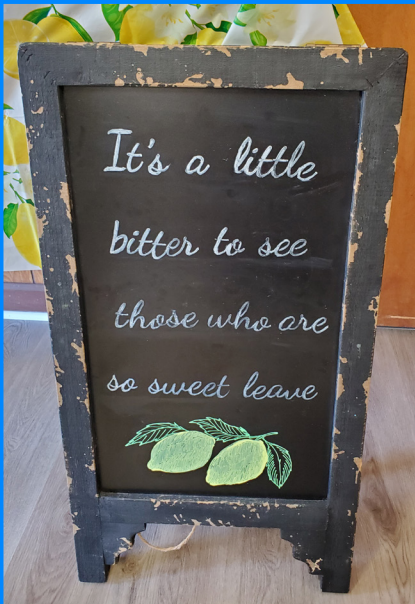 It's a little
bitter to see
those who are
so sweet leave